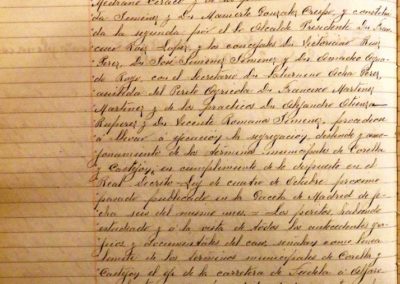 Medrano Cerado y D. 
da Jimenez y Dn Mamerto Gonzalez Crespo, y constitui-
da la segunda por el Sr Alcalde Presidente Dn Fran-
cisco Ruiz Lopez, y los concejales Dn Victoriano Ruiz
Perez, Dn José Jimenez Jimenez y Dn Leocadio Ogua-
do Rugo, con el secretario Dn Saturnino Ochoa Perez,
asistida del Perito Agricola Dn Francisco Martinez
Martinez y de los practicos Dn Alejandro
Ruperez y Dn Vicente Romano Jimenez procedieron
á llevar á ejecucion la segregacion, deslinde y amo-
jonamiento de los términos municipales de Corella
y Castejon, en cumplimiento á lo dispuesto en el
Real Decreto-Ley de cuatro de Octubre proximo
pasado publicado en la Gaceta de Madrid de fe-
cha seis del mismo mes. = Los peritos habiendo
estudiado y á la vista de todos los antecedentes gra-
ficos y documentales del caso, señalan como linea
limite de los términos municipales de Corella y
Castejon el eje de la carretera de Tudela á Alfaro